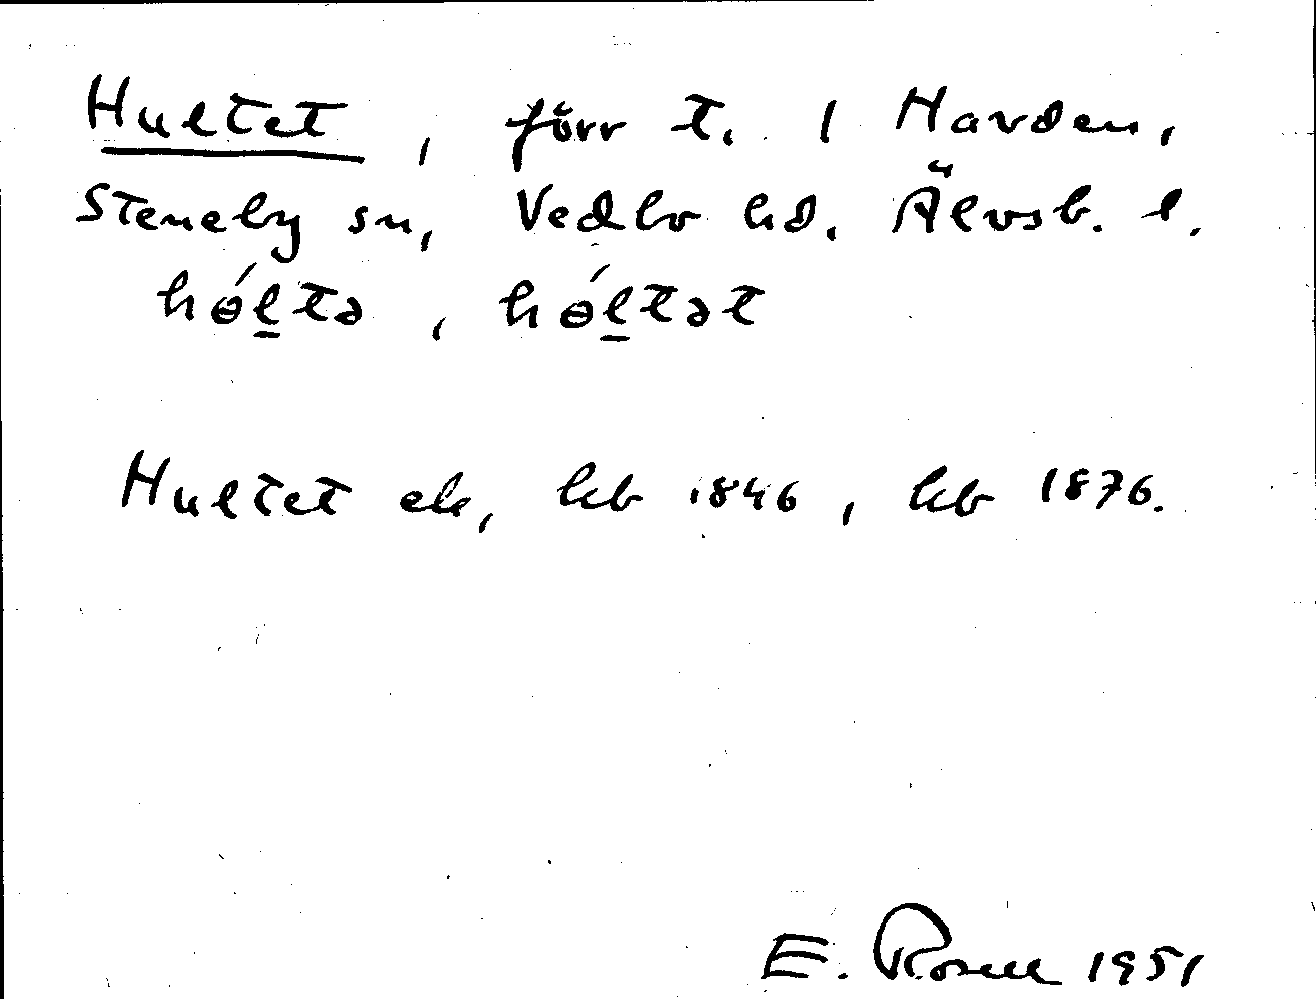 Hultet, förr t. 1 Harden,
Steneby sn, Vedbo hd. Älvsb. l.
hɵ́l̲tə, hɵ́l̲tət
Hultet ele, hb 1846, hb 1876.
E. Rosell 1951